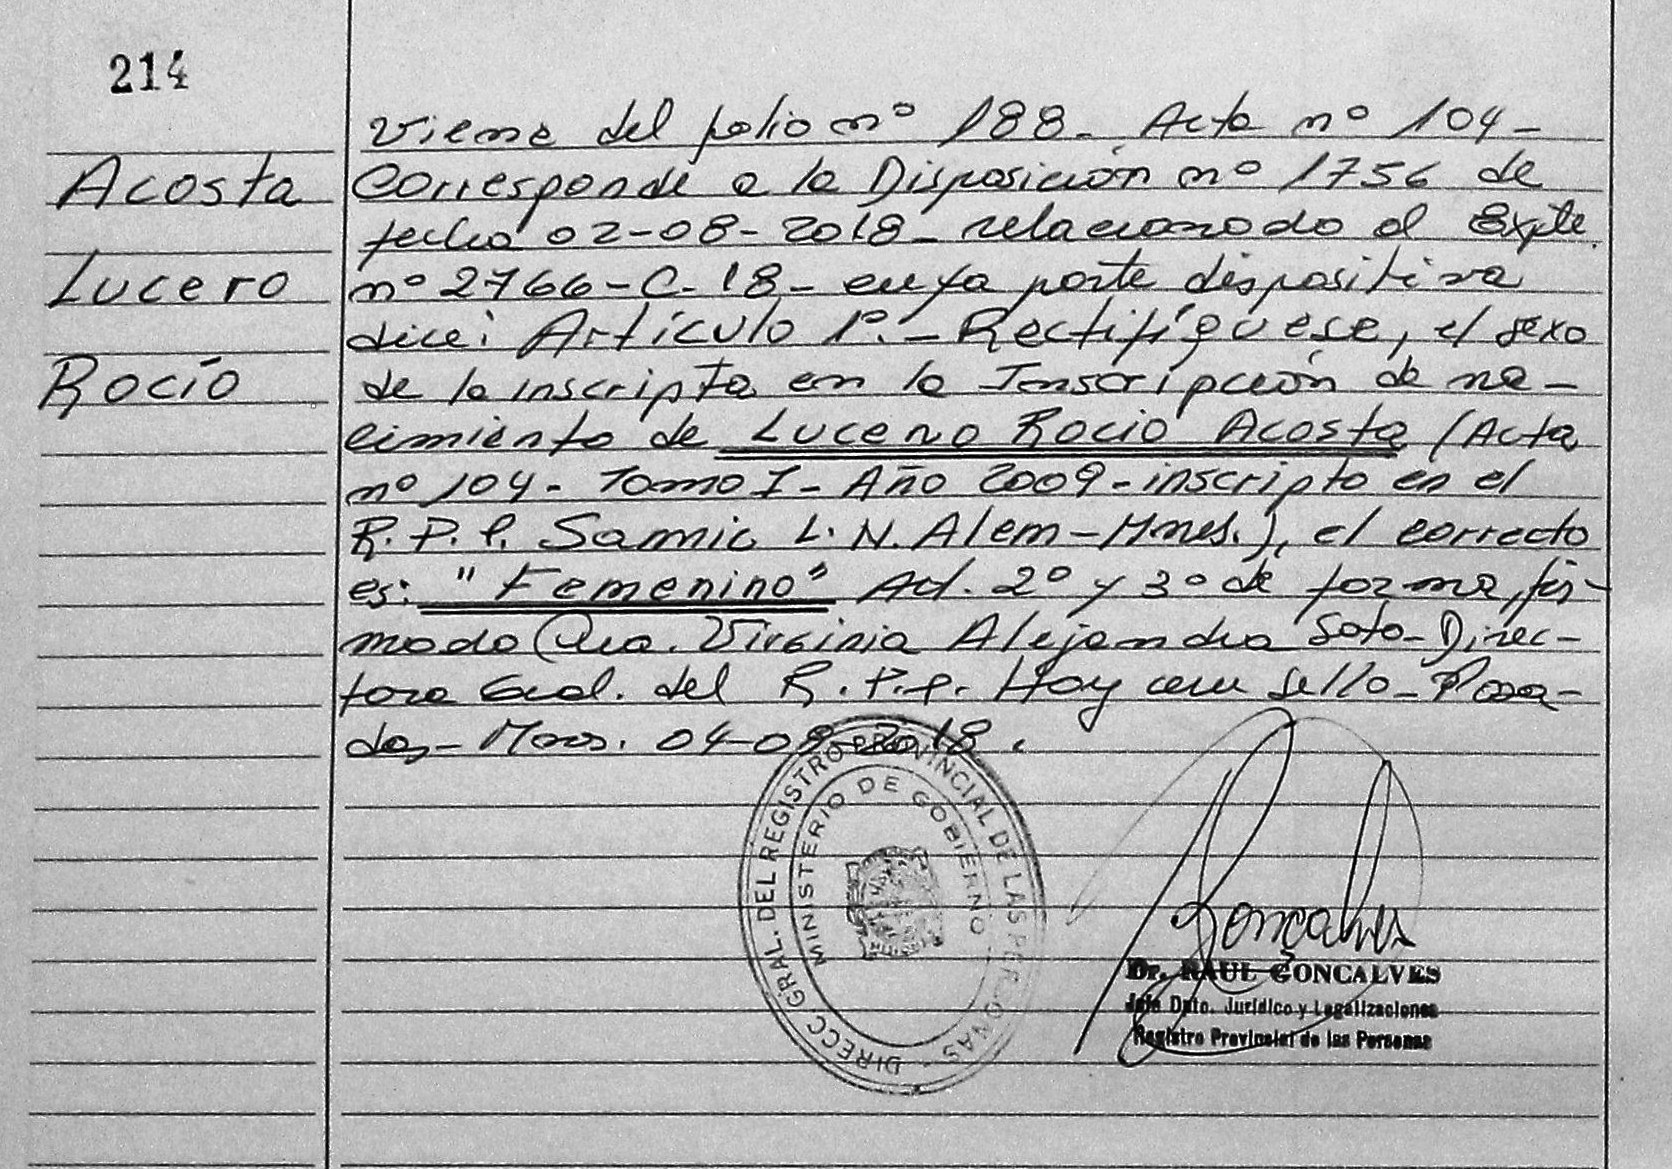 214
Acosta
Lucero
Rocío
Viene del folio nº 188- Acta nº 104-
Corresponde a la Disposición nº 1756 de
fecha 02-08-2018- relacionado al Expte.
nº 2766-C-18- cuya parte dispositiva
dice: Artículo 1º.- Rectifíquese, el sexo
de la inscripta en la Inscripción de na-
cimiento de Lucero Rocio Acosta (Acta
nº 104- Tomo I- Año 2009- inscripto en el
R.P.P. Samic L.N. Alem-Mnes.), el correcto
es: "Femenino" Art. 2º y 3º de forma, fir-
mado Dra. Virginia Alejandra Soto- Direc-
tora Gral. del R.P.P. Hay un sello- Posa-
das- Mnes. 04-09-2018.
DIRECC. GRAL. DEL REGISTRO PROVINCIAL DE LAS PERSONAS
MINISTERIO DE GOBIERNO
Goncalves
Dr. RAUL GONCALVES
Jefe Dpto. Jurídico y Legalizaciones
Registro Provincial de las Personas